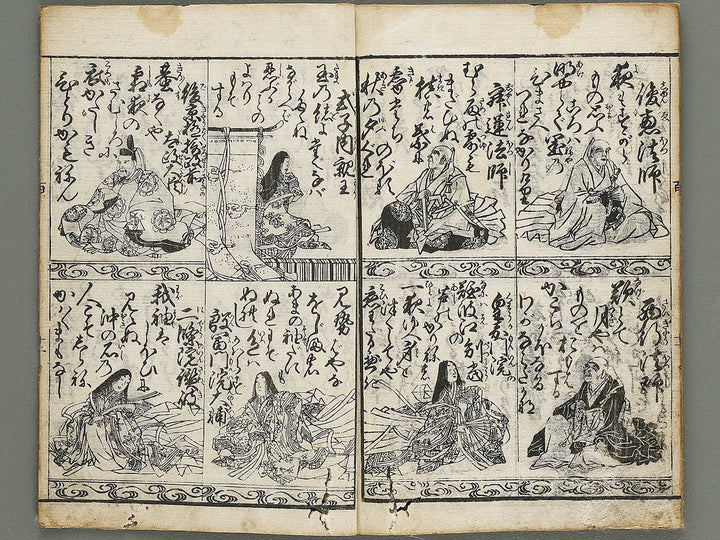 俊恵法師
夜もすから
ものおもふ
ころは
明やらて
閨の
ひまさへ
つれなかりけり
西行法師
歎けとて
月やは
ものを
おもはする
かこちかほなる
わかなみたかな
寂蓮法師
むら雨の露も
またひぬ
槙の葉に
霧立
のほる
秋の夕くれ
皇嘉門院
別当
難波江の
芦の
かりねの
一夜ゆゑ
身を
つくしてや
恋わたるへき
式子内親王
玉の緒よ
たえなは
たえね
なからへは
忍ふる
ことの
よわりも
そする
殷富門院大輔
見せはやな
をしまの
あまの袖たにも
ぬれにそ
ぬれし
色はかはらす
後京極摂政前
太政大臣
きり〳〵す
鳴や
霜夜の
さむしろに
衣かたしき
ひとりかもねん
二条院讃岐
我袖は
しほひに
見えぬ
沖の石の
人こそしらね
かわくまもなし